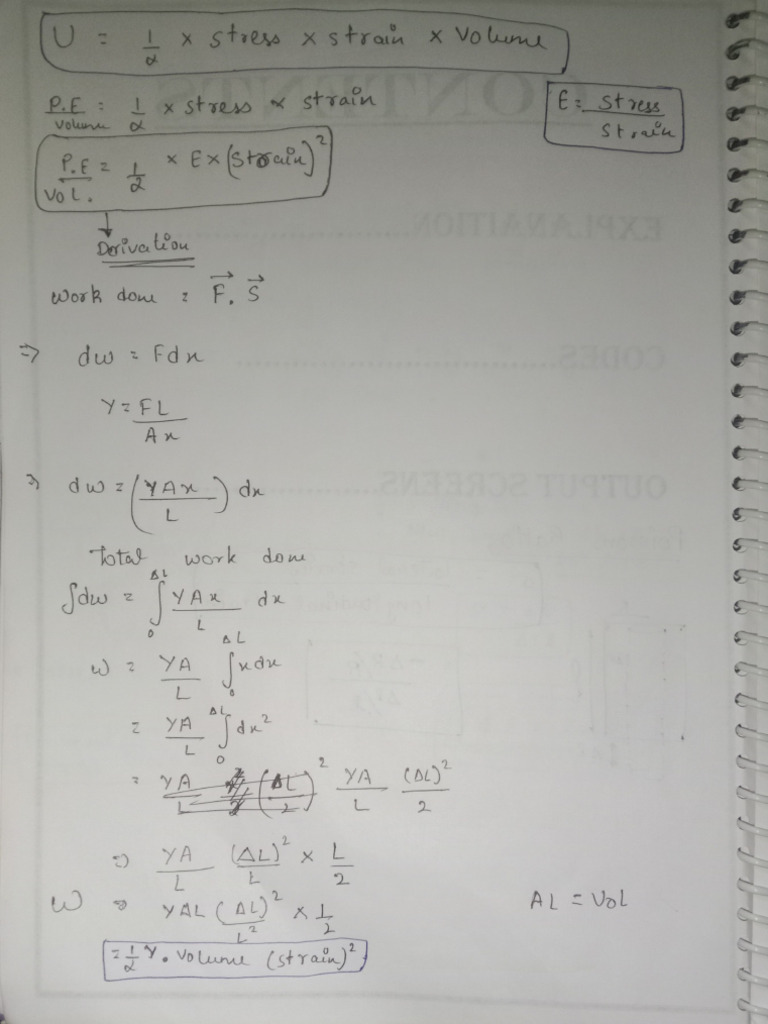 U = 1/2 × stress × strain × Volume
P.E/volume = 1/2 × stress × strain
E = stress/strain
P.E/VOL. = 1/2 × E × (strain)²
Derivation
work done = F⃗. S⃗
⇒ dw = Fdx
Y = FL/Ax
⇒ dw = (YAx/L) dx
Total work done
∫dw = ∫₀^ΔL YAx/L dx
W = YA/L ∫₀^ΔL xdx
= YA/L ∫₀^ΔL dx²
= YA/L (ΔL/2)² YA/L (ΔL)²/2
⇒ YA/L (ΔL)²/L × L/2
W ⇒ YAL (ΔL)²/L² × 1/2
AL = VOL
= 1/2 Y. Volume (strain)²
CONTENTS
EXPLANAITION
CODES
OUTPUT SCREENS